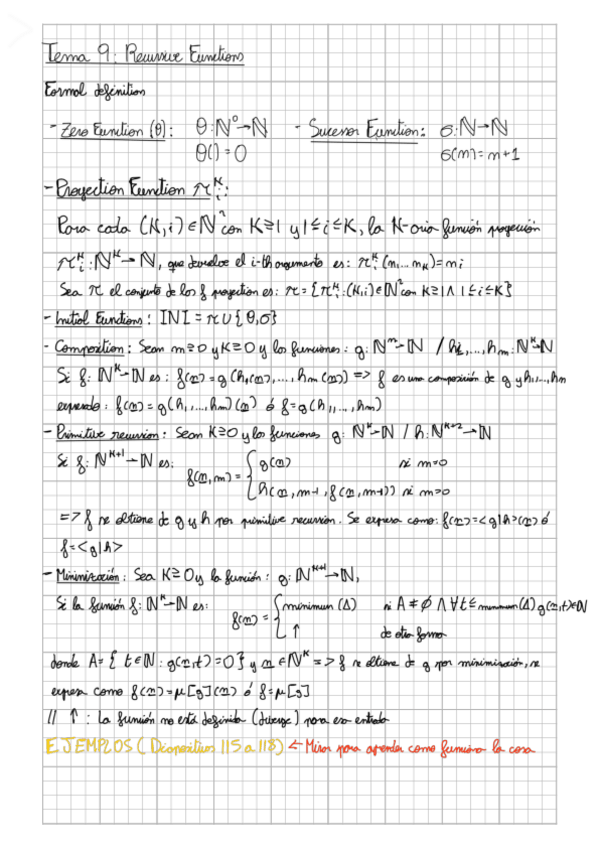 Tema 9: Recursive Functions
Formal definition
- Zero Function (θ): θ:ℕ⁰→ℕ - Sucesor Function: σ:ℕ→ℕ
θ()=0 σ(m)=m+1
- Proyection Function πᵢᴷ:
Para cada (K,i)∈ℕ² con K≥1 y 1≤i≤K, la K-aria función proyección
πᵢᴷ:ℕᴷ→ℕ, que devuelve el i-th argumento es: πᵢᴷ(m₁...mₖ)=mᵢ
Sea π el conjunto de las f projection es: π={πᵢᴷ:(K,i)∈ℕ² con K≥1 ∧ 1≤i≤K}
- Initial Functions: INI = π∪{θ,σ}
- Composition: Sean m≥0 y K≥0 y las funciones: g:ℕᵐ→ℕ / h₁,...,hm:ℕᴷ→ℕ
Si f:ℕᴷ→ℕ es: f(n)=g(h₁(n),...,hm(n)) => f es una composición de g y h₁,...,hm
expresado: f(n)=g(h₁,...,hm)(n) ó f=g(h₁,...,hm)
- Primitive recursion: Sean K≥0 y las funciones g:ℕᴷ→ℕ / h:ℕᴷ⁺²→ℕ
Si f:ℕᴷ⁺¹→ℕ es: f(n,m)= { g(n) si m=0
h(n,m-1,f(n,m-1)) si m>0
=> f se obtiene de g y h por primitive recursion. Se expresa como: f(n)=<g|h>(n) ó
f=<g|h>
- Minimización: Sea K≥0 y la función: g:ℕᴷ⁺¹→ℕ,
Si la función f:ℕᴷ→ℕ es: f(n)= { minimum(A) si A≠∅ ∧ ∀t≤minimum(A) g(n,t)∈ℕ
↑ de otra forma
donde A={t∈ℕ: g(n,t)=0} y n∈ℕᴷ => f se obtiene de g por minimización, se
expresa como f(n)=μ[g](n) ó f=μ[g]
// ↑: La función no está definida (diverge) para esa entrada
EJEMPLOS (Diapositivas 115 a 118) ← Mirar para aprender como funciona la cosa